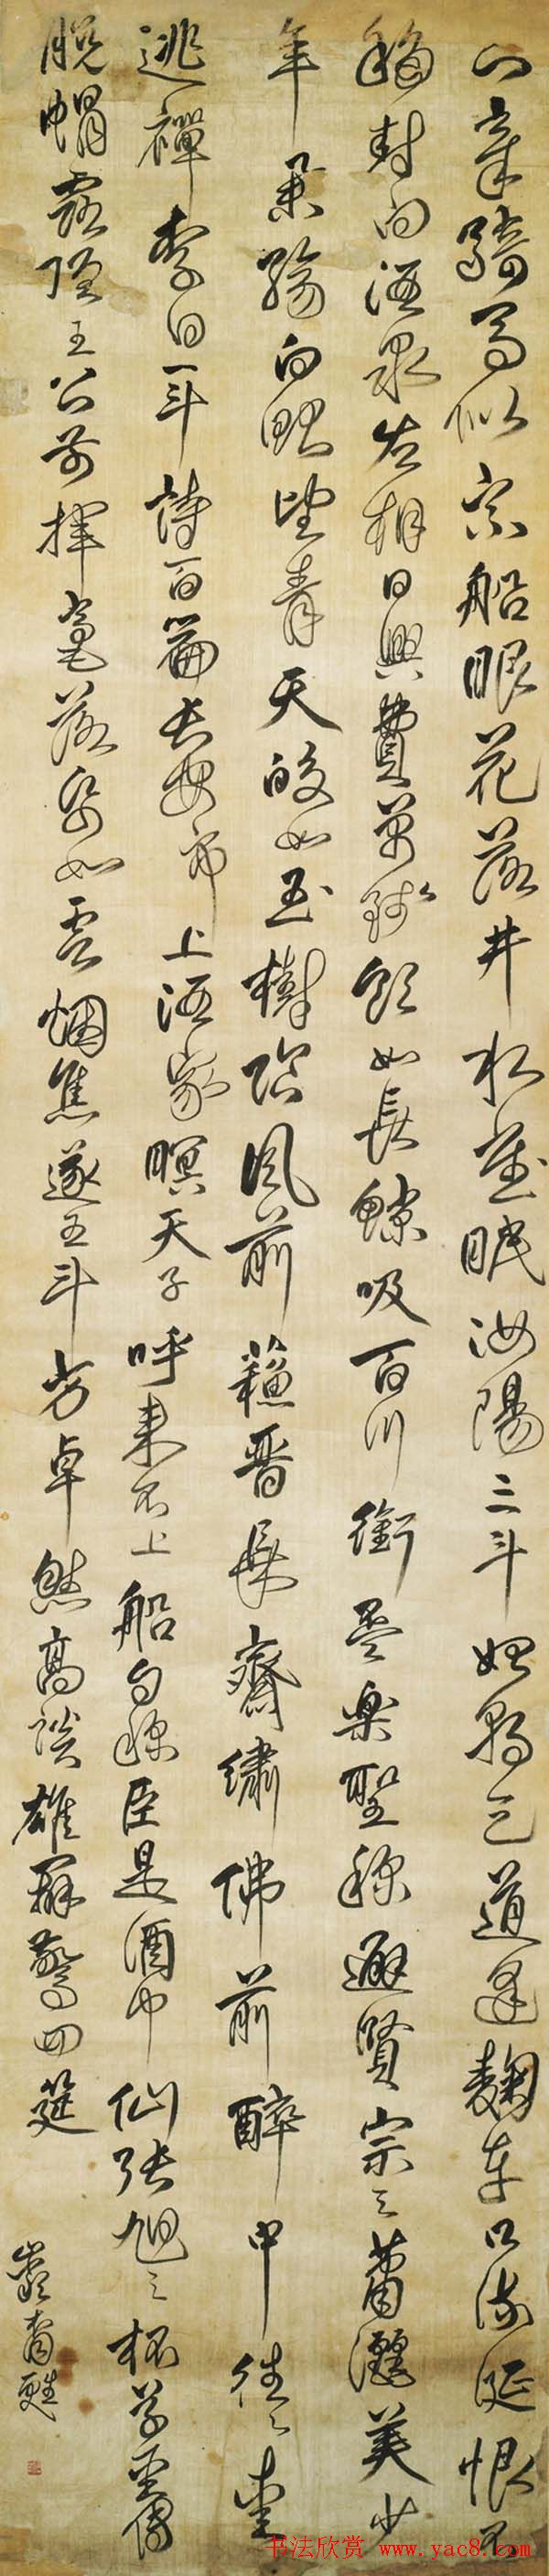 知章騎馬似乘船眼花落井水底眠汝陽三斗始朝天道逢麴車口流涎恨不
移封向酒泉左相日興費萬錢飲如長鯨吸百川銜盃樂聖稱避賢宗之蕭灑美少
年舉觴白眼望青天皎如玉樹臨風前蘇晉長齋繡佛前醉中往往愛
逃禪李白一斗詩百篇長安市上酒家瞑天子呼來不上船自稱臣是酒中仙張旭三杯草聖傳
脫帽露頂王公前揮毫落紙如雲烟焦遂五斗方卓然高談雄辯驚四筵
书法欣赏 www.yac8.com